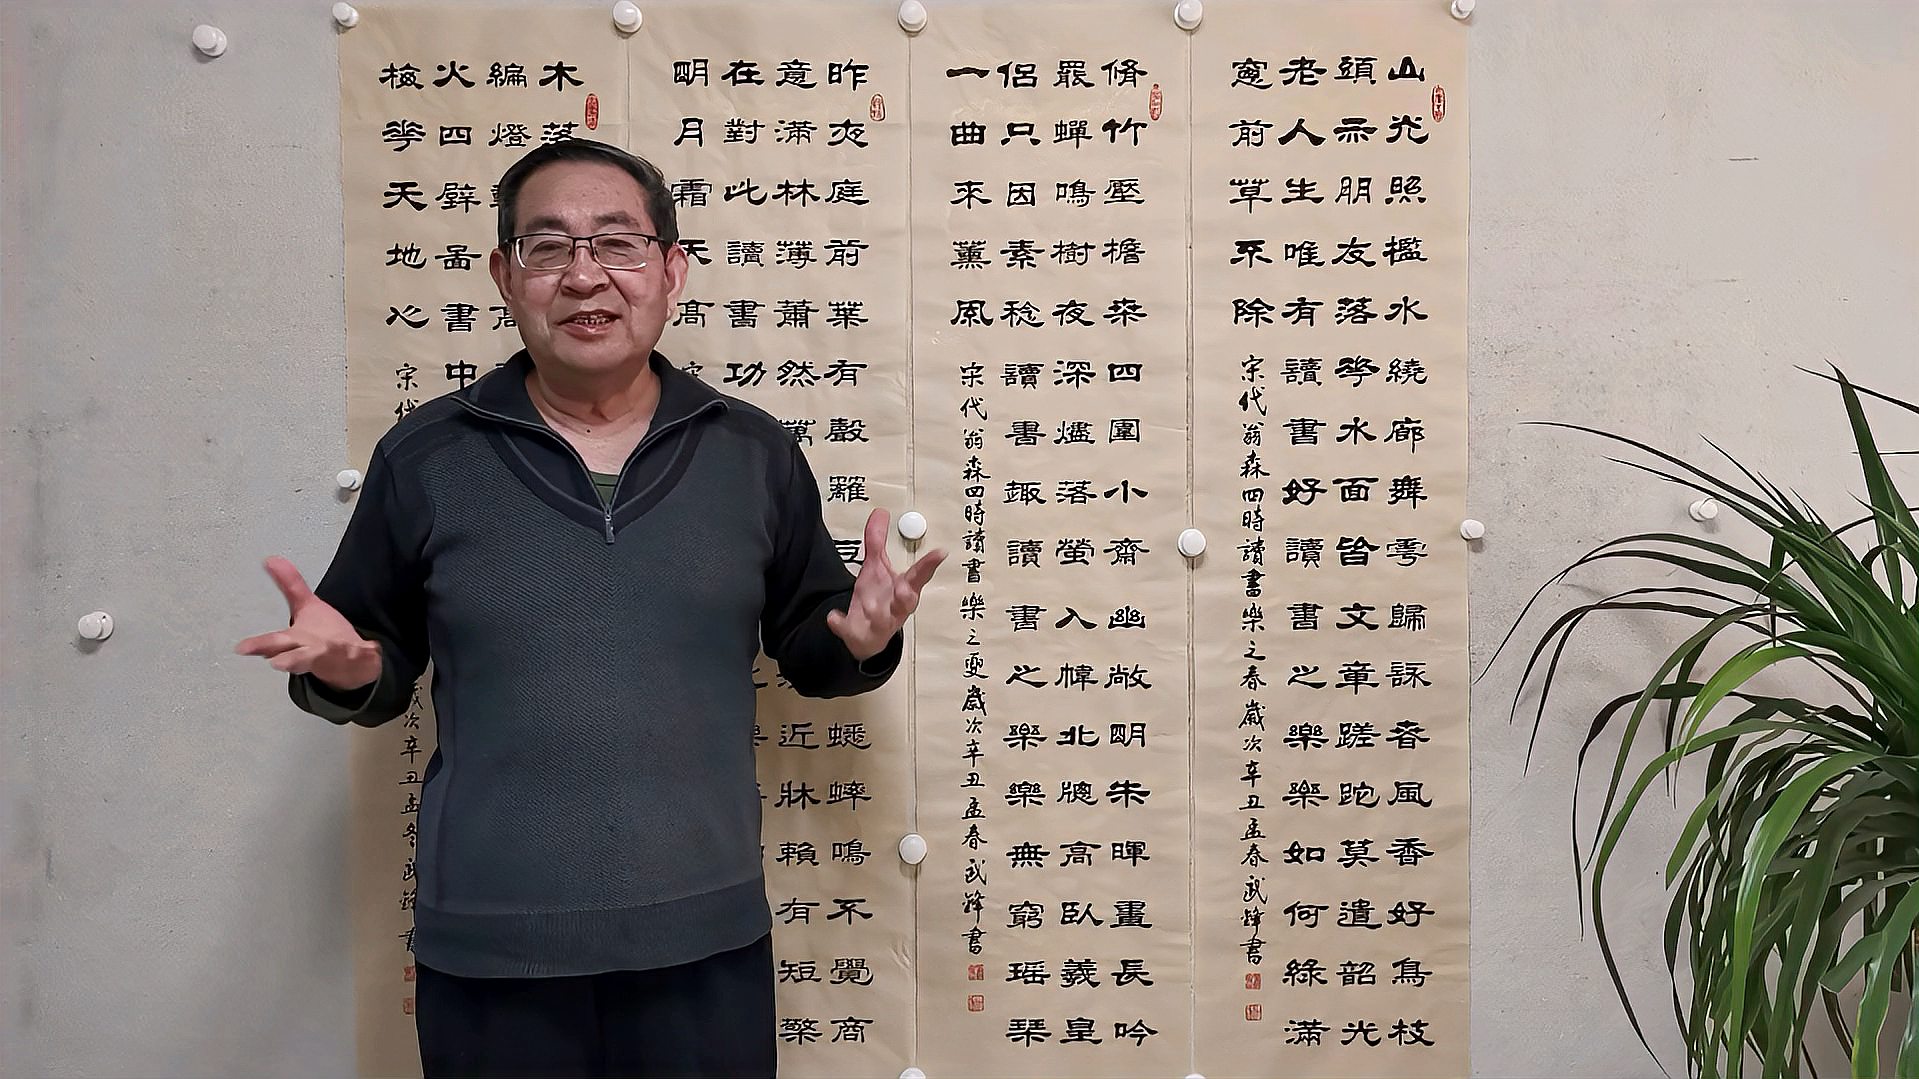 山光照檻水繞廊舞雩歸詠春風香好鳥枝
頭亦朋友落花水面皆文章蹉跎莫遣韶光
老人生唯有讀書好讀書之樂樂如何綠滿
窻前草不除
宋代翁森四時讀書樂之春歲次辛丑孟春武鋒書
脩竹壓檐桑四圍小齋幽敞明朱暉晝長吟
罷蟬鳴樹夜深燼落螢入幃北牕高臥羲皇
侶只因素稔讀書趣讀書之樂樂無窮瑤琴
一曲來薰風
宋代翁森四時讀書樂之夏歲次辛丑孟春武鋒書
昨夜庭前葉有聲籬豆蟋蟀鳴不覺商
意滿林薄蕭然萬近牀賴有短檠
在對此讀書功
明月霜天高
木落
編燈
火四壁圖書中
梅花天地心
宋代歲次辛丑孟冬武鋒書